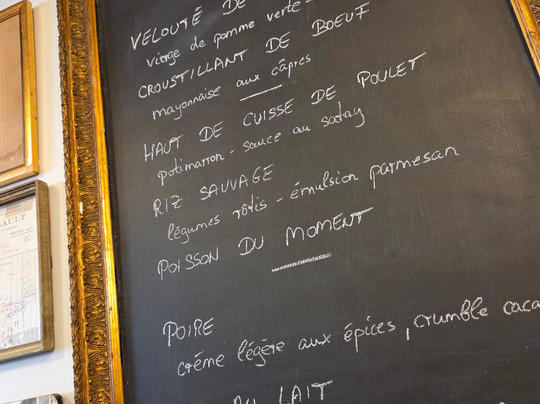 VELOUTÉ DE
vierge de pomme verte -
CROUSTILLANT DE BOEUF
mayonnaise aux câpres
HAUT DE CUISSE DE POULET
potimarron - sauce au satay
RIZ SAUVAGE
légumes rôtis - émulsion parmesan
POISSON DU MOMENT
POIRE
crème légère aux épices, crumble caca
AU LAIT